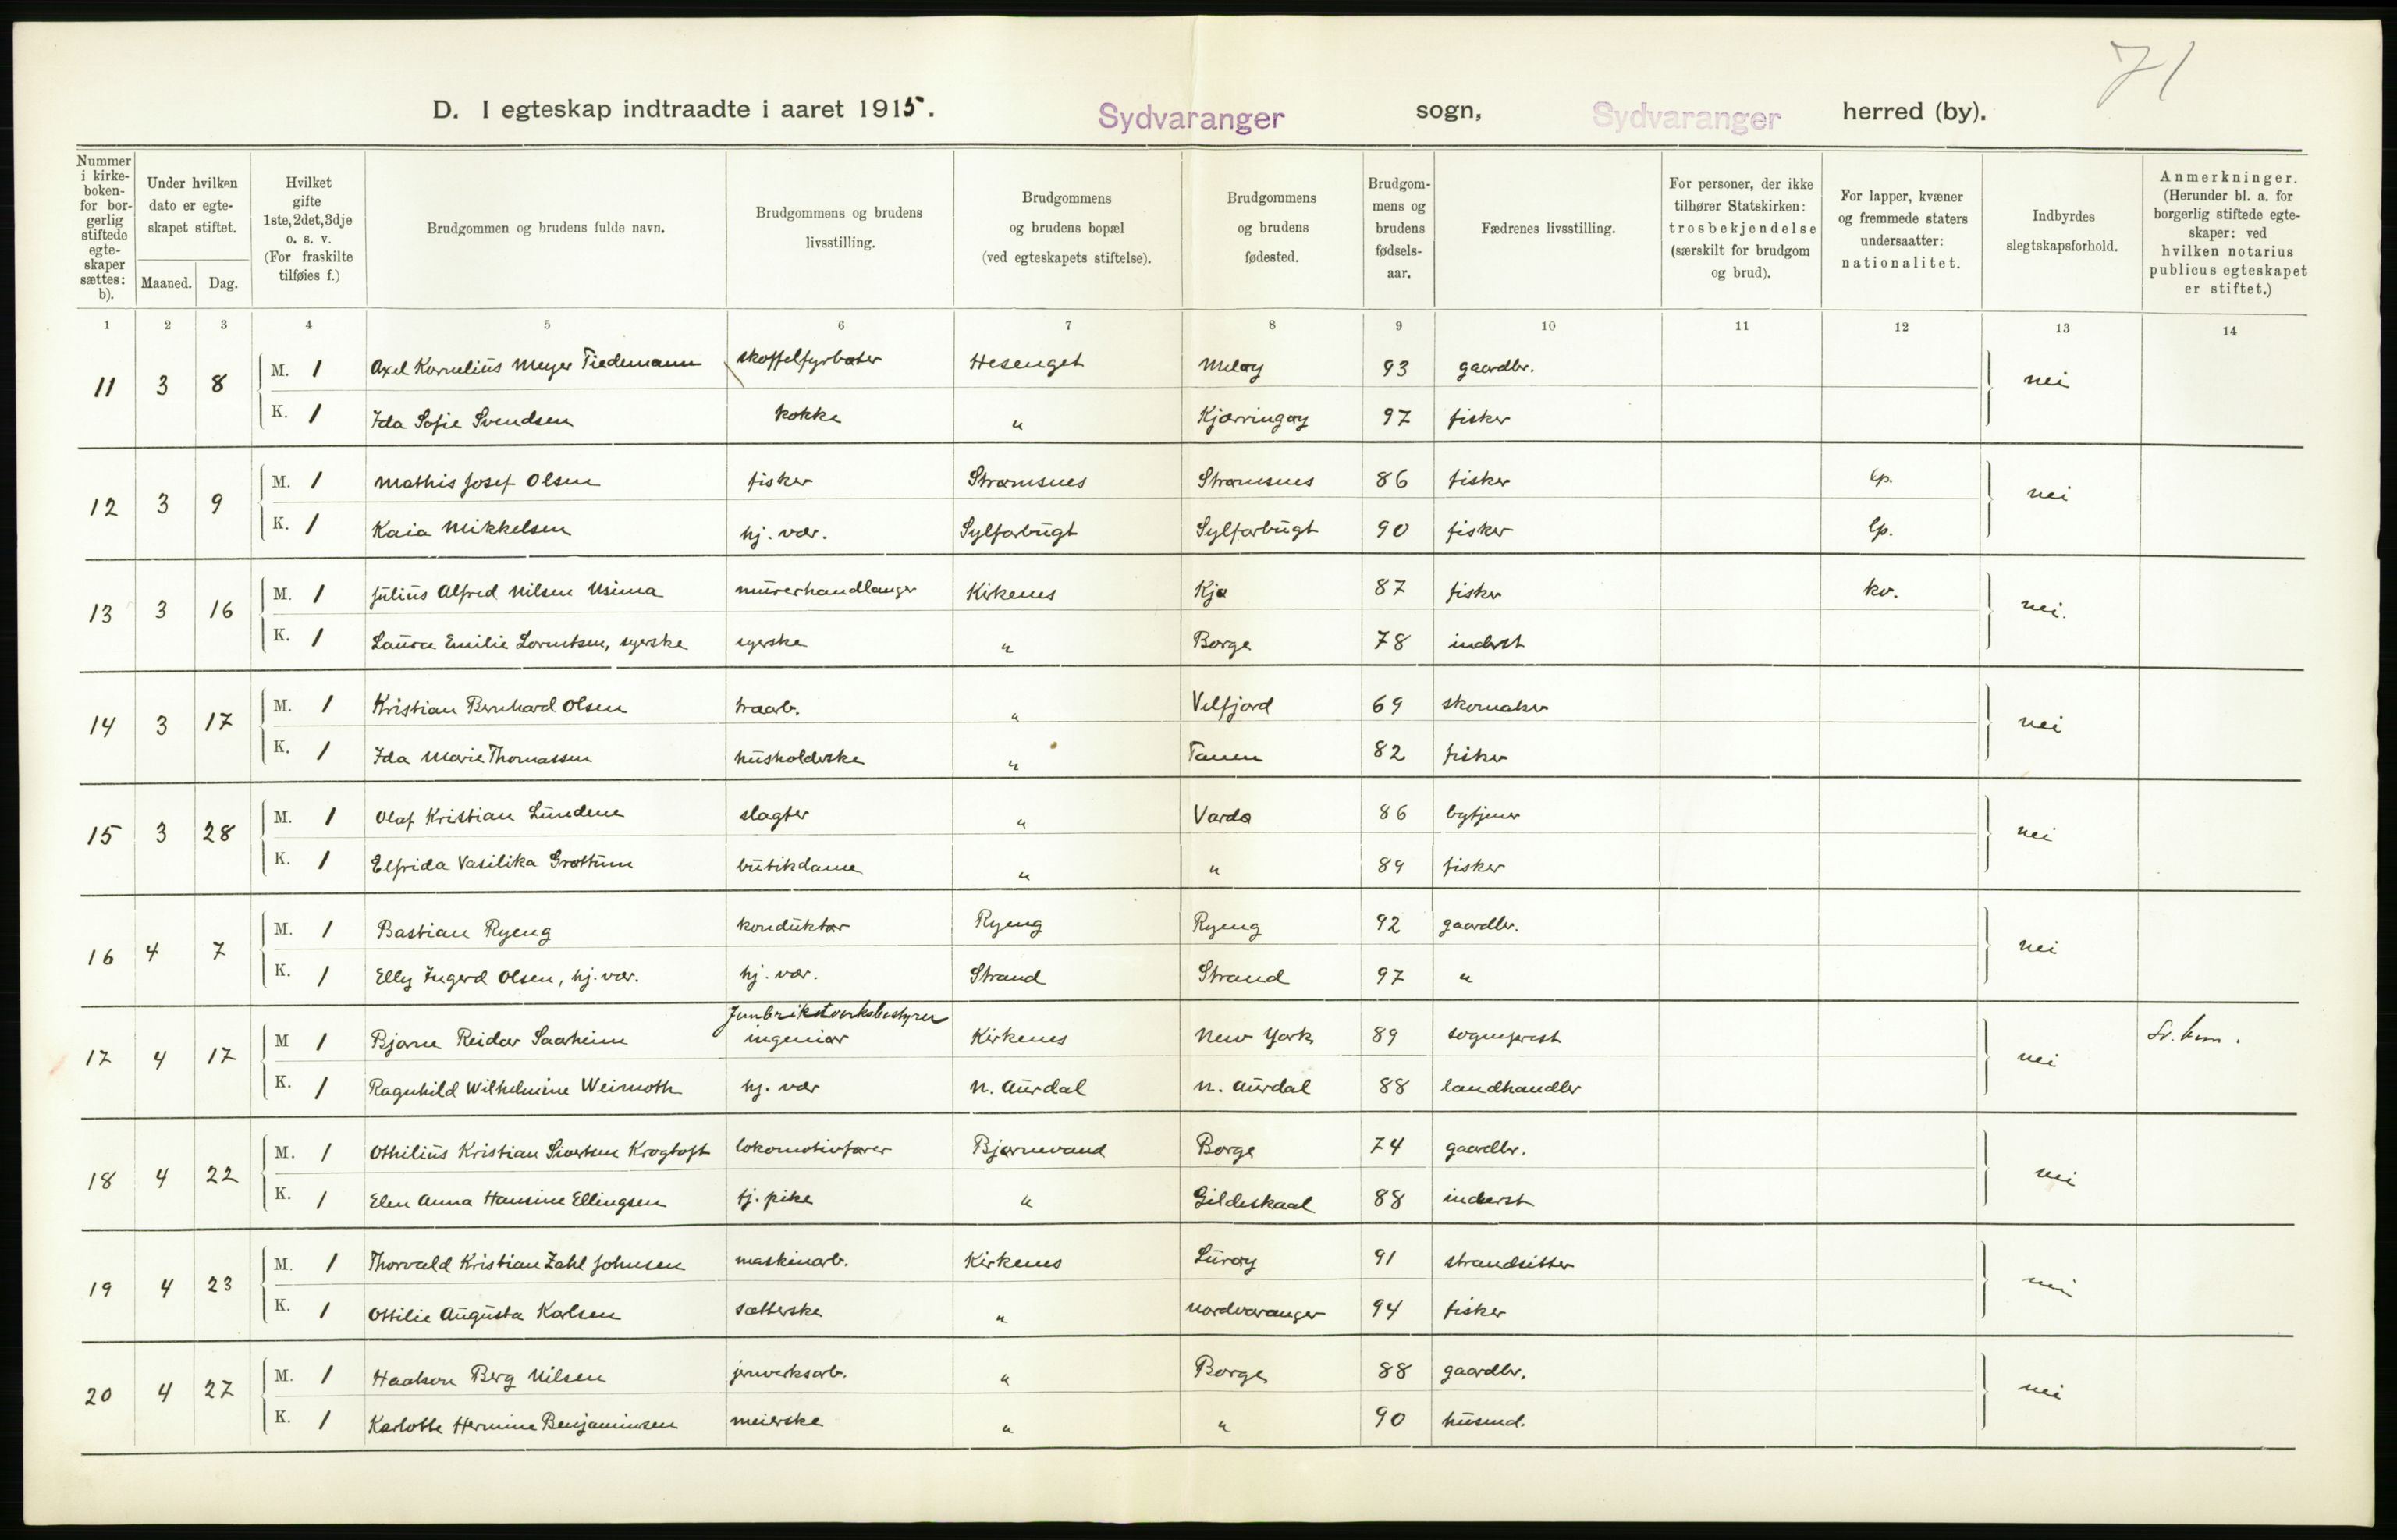 71
D. I egteskap indtraadte i aaret 1915. Sydvaranger sogn, Sydvaranger herred (by).
Nummer i kirkeboken- for borgerlig stiftede egteskaper sættes: b).
Under hvilken dato er egteskapet stiftet.
Maaned. Dag.
Hvilket gifte 1ste, 2det, 3dje o. s. v. (For fraskilte tilføies f.)
Brudgommen og brudens fulde navn.
Brudgommens og brudens livsstilling.
Brudgommens og brudens bopæl (ved egteskapets stiftelse).
Brudgommens og brudens fødested.
Brudgommens og brudens fødselsaar.
Fædrenes livsstilling.
For personer, der ikke tilhører Statskirken: trosbekjendelse (særskilt for brudgom og brud).
For lapper, kvæner og fremmede staters undersaatter: nationalitet.
Indbyrdes slegtskapsforhold.
Anmerkninger. (Herunder bl. a. for borgerlig stiftede egteskaper: ved hvilken notarius publicus egteskapet er stiftet.)
1 2 3 4 5 6 7 8 9 10 11 12 13 14
11 3 8 M. 1 Axel Kornelius Meyer Tiedemann skoffelfyrbøter Hesenget Meløy 93 gaardbr. nei
K. 1 Ida Sofie Svendsen kokke " Kjærringøy 97 fisker
12 3 9 M. 1 Mathis Josef Olsen fisker Strømsnes Strømsnes 86 fisker lp. nei
K. 1 Kaia Mikkelsen hj. vær. Sylfarbugt Sylfarbugt 90 fisker lp.
13 3 16 M. 1 Julius Alfred Nilsen Usima murerhandlanger Kirkenes Kjø 87 fisker kv. nei.
K. 1 Laura Emilie Lorentsen, syerske syerske " Borge 78 inderst
14 3 17 M. 1 Kristian Bernhard Olsen træarb. " Velfjord 69 skomaker nei
K. 1 Ida Marie Thomassen husholderske " Tanen 82 fisker
15 3 28 M. 1 Olaf Kristian Lundene slagter " Vardø 86 bytjener nei
K. 1 Elfrida Vasilika Grøttum butikdame " " 89 fisker
16 4 7 M. 1 Bastian Ryeng konduktør Ryeng Ryeng 92 gaardbr. nei
K. 1 Elly Ingerd Olsen, hj. vær. hj. vær. Strand Strand 97 "
Jernbrikstverksbestyrer
17 4 17 M 1 Bjarne Reidar Saarheim ingeniør Kirkenes New York 89 sogneprest nei
K. 1 Ragnhild Wilhelmine Weirnoth hj. vær N. Aurdal N. Aurdal 88 landhandler
18 4 22 M. 1 Othilius Kristian Sivertsen Krogtoft lokomotivfører Bjørnevand Borge 74 gaardbr. nei
K. 1 Elen Anna Hansine Ellingsen tj. pike " Gildeskaal 88 inderst
19 4 23 M. 1 Thorvald Kristian Zahl Johnsen maskinarb. Kirkenes Lurøy 91 strandsitter nei
K. 1 Ottilie Augusta Karlsen sætterske " Nordvaranger 94 fisker
20 4 27 M. 1 Haakon Berg Nilsen jernverksarb. " Borge 88 gaardbr. nei
K. 1 Karlotte Hermine Benjaminsen meierske " " 90 husmd.